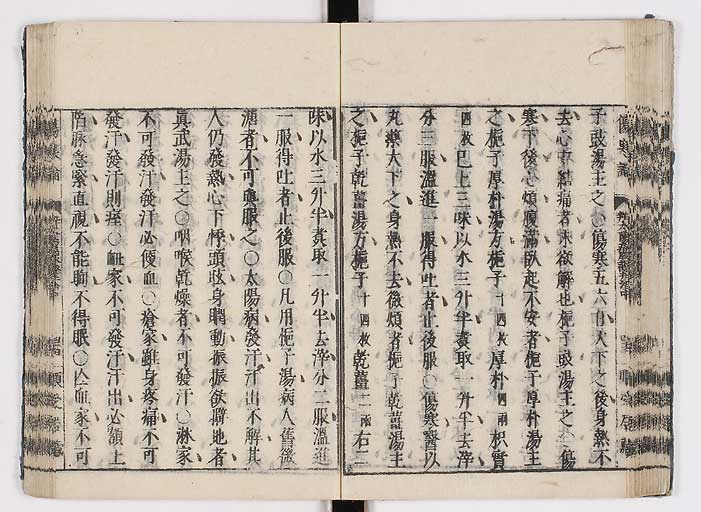 子豉湯主之○傷寒五六日大下之後身熱不
去心中結痛者未欲解也梔子豉湯主之○傷
寒下後心煩腹滿臥起不安者梔子厚朴湯主
之梔子厚朴湯方梔子十四枚厚朴四兩枳實
四枚已上三味以水三升半煑取一升半去滓
分二服溫進一服得吐者止後服○傷寒醫以
丸藥大下之身熱不去微煩者梔子乾薑湯主
之梔子乾薑湯方梔子十四枚乾薑二兩右二
味以水三升半煑取一升半去滓分二服溫進
一服得吐者止後服○凡用梔子湯病人舊微
溏者不可與服之○太陽病發汗汗出不解其
人仍發熱心下悸頭眩身瞤動振振欲擗地者
真武湯主之○咽喉乾燥者不可發汗○淋家
不可發汗發汗必便血○瘡家雖身疼痛不可
發汗發汗則痓○衄家不可發汗汗出必額上
陷脉急緊直視不能眴不得眠○亾血家不可
傷寒論